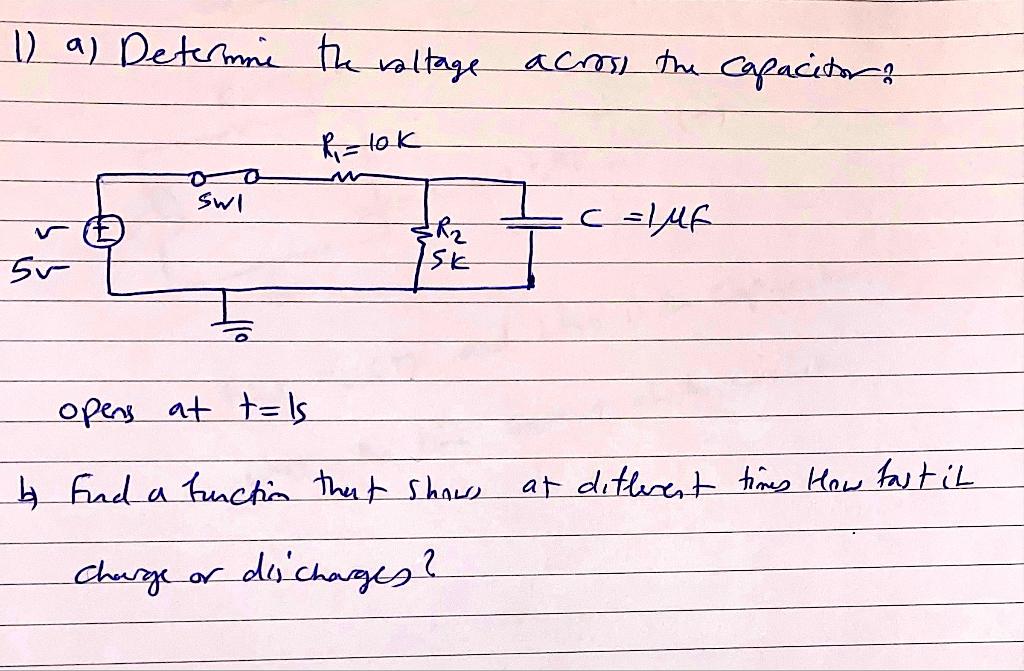 1) a) Determine the voltage across the capacitor?
R₁=10K
SW1
v
5v
R₂
5K
C =1μF
opens at t=1s
b) Find a function that shows at different times How fast it
charge or discharges?